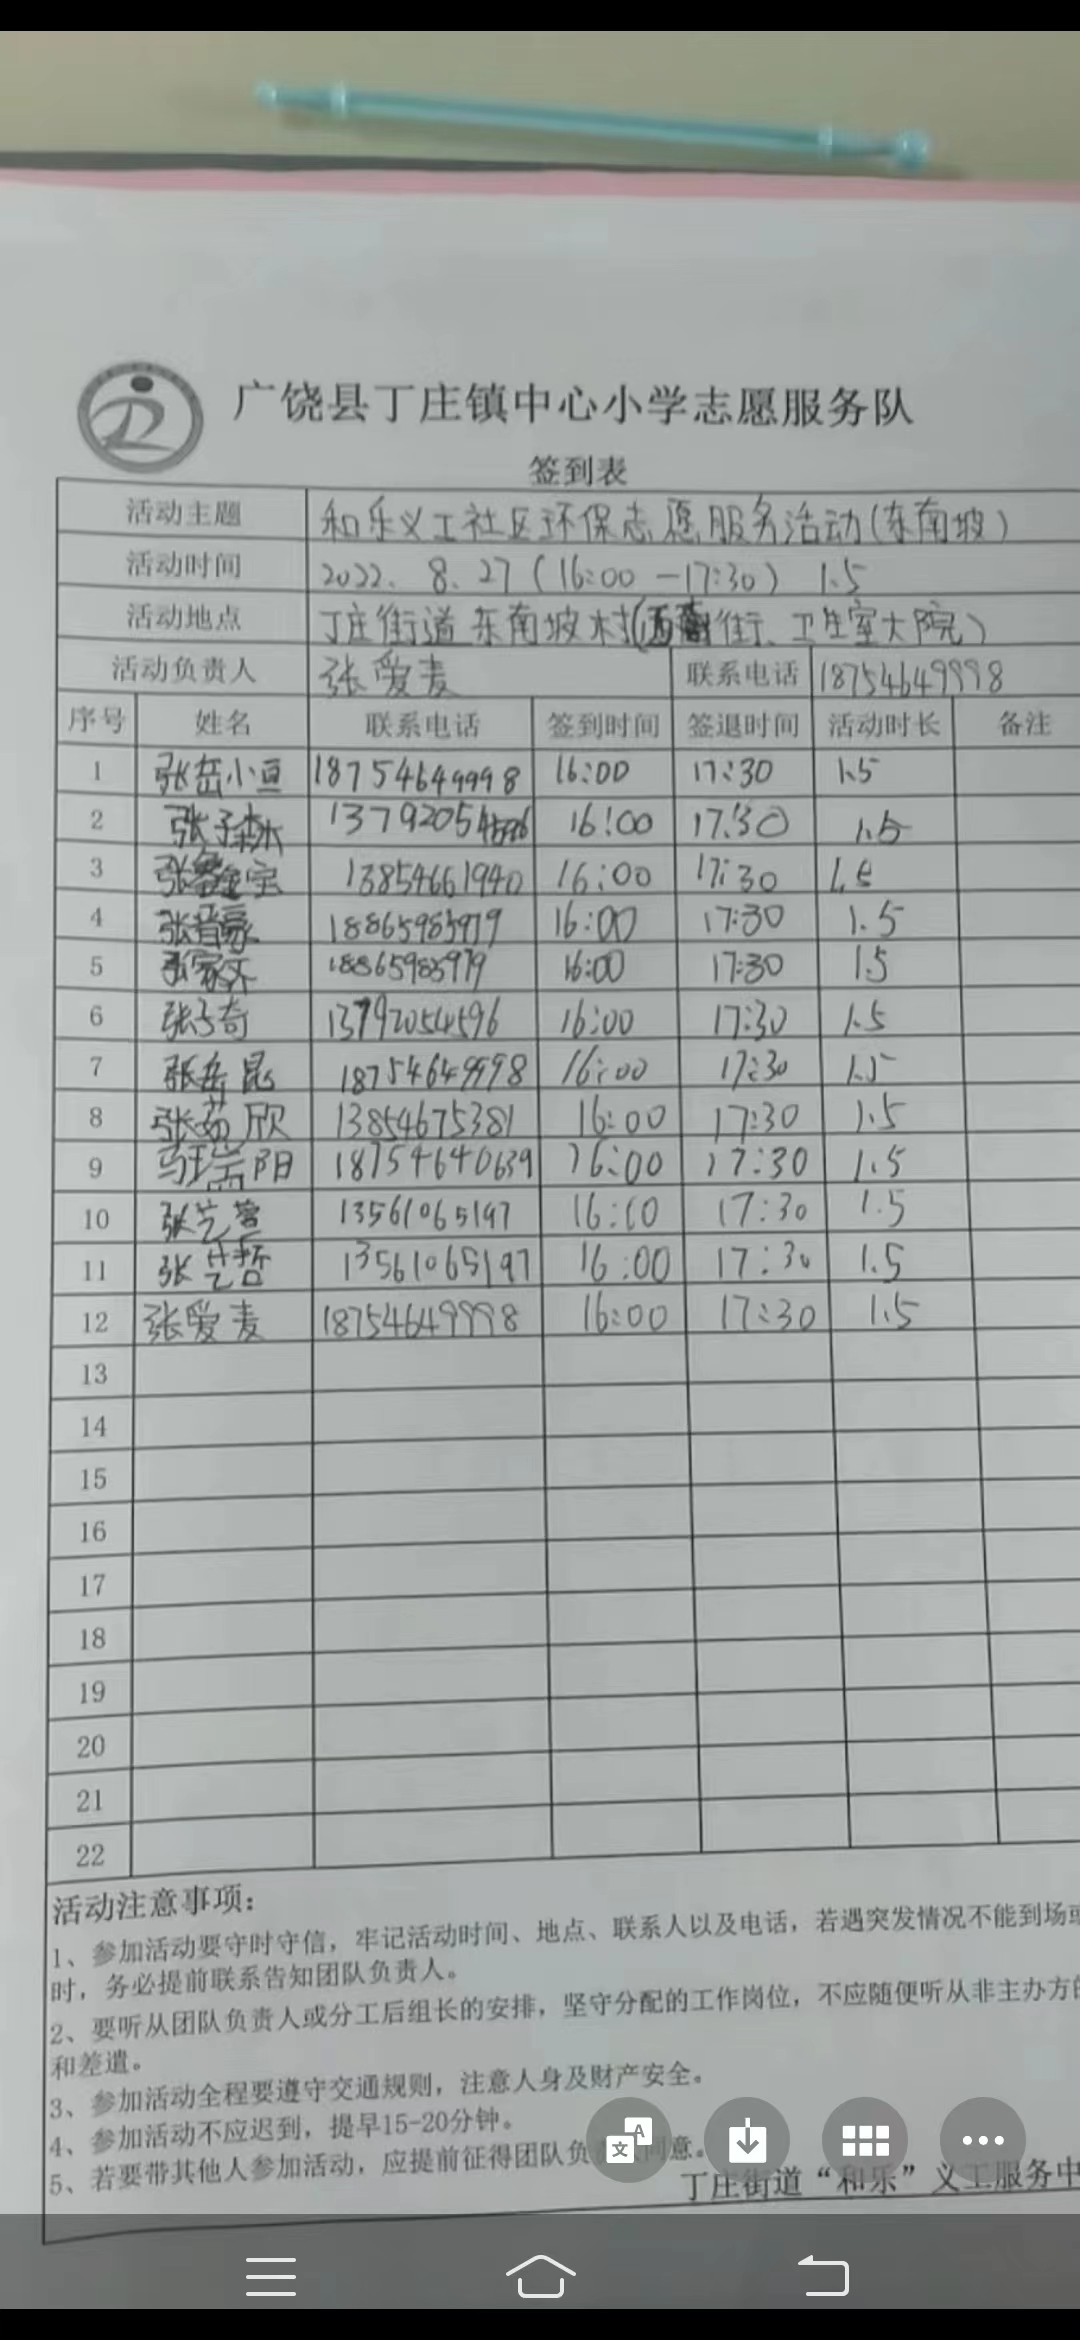 广饶县丁庄镇中心小学志愿服务队
签到表
活动主题 和乐义工社区环保志愿服务活动(东南坡)
活动时间 2022.8.27(16:00-17:30) 1.5
活动地点 丁庄街道东南坡村( 街、卫生室大院)
活动负责人 张爱麦 联系电话 18754649998
序号 姓名 联系电话 签到时间 签退时间 活动时长 备注
1 张岳小亘 18754649998 16:00 17:30 1.5
2 张子 16:00 17:30 1.5
3 张 宝 13854661940 16:00 17:30 1.5
4 张 豪 18865983979 16:00 17:30 1.5
5 张家 18865983979 16:00 17:30 1.5
6 张子奇 13792054596 16:00 17:30 1.5
7 张岳昆 18754649998 16:00 17:30 1.5
8 张茹欣 13854675381 16:00 17:30 1.5
9 马瑞阳 18754640639 16:00 17:30 1.5
10 张艺 13561065197 16:00 17:30 1.5
11 张艺哲 13561065197 16:00 17:30 1.5
12 张爱麦 18754649998 16:00 17:30 1.5
13
14
15
16
17
18
19
20
21
22
活动注意事项:
1、参加活动要守时守信，牢记活动时间、地点、联系人以及电话，若遇突发情况不能到场或
时，务必提前联系告知团队负责人。
2、要听从团队负责人或分工后组长的安排，坚守分配的工作岗位，不应随便听从非主办方的
和差遣。
3、参加活动全程要遵守交通规则，注意人身及财产安全。
4、参加活动不应迟到，提早15-20分钟。
5、若要带其他人参加活动，应提前征得团队负 同意。
丁庄街道“和乐”义工服务中